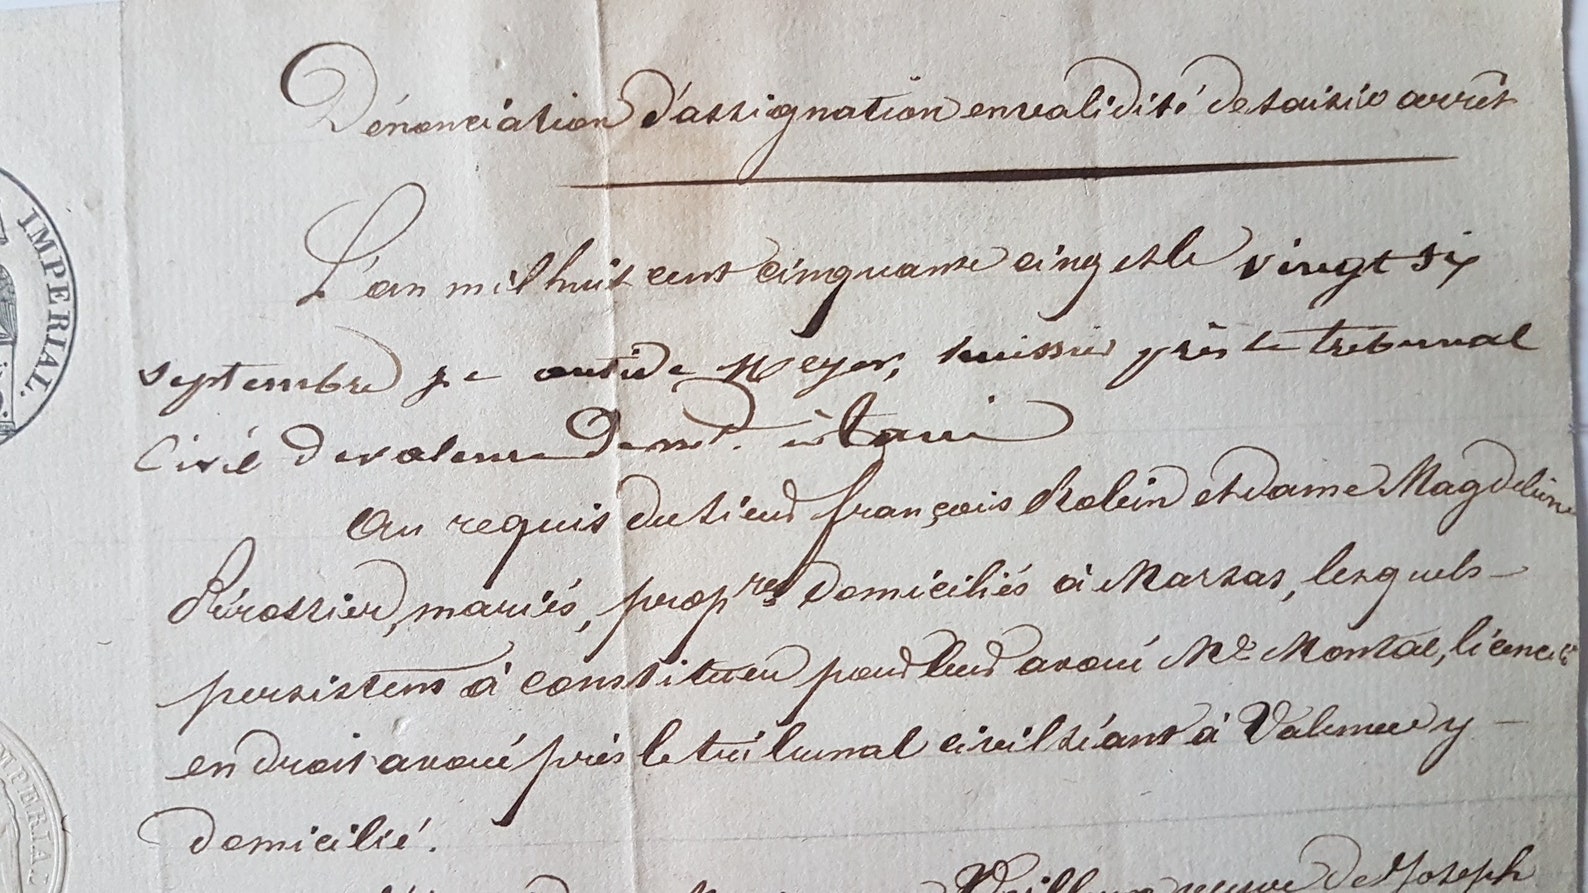 Dénonciation d'assignation en validité de saisie arrêt
L'an mil huit cent cinquante cinq et le vingt six
septembre je antide Meyer, huissier près le tribunal
Civil de valence Demt. à tain
Au requis du sieur françois Robin et dame Magdeleine
Pérossier, mariés, propres domiciliés à Marsas, lesquels
persistent à constituer pour leur avoué Me Montal, licencié
en droit avoué près le tribunal civil séant à Valence y
domicilié.
veuve de Joseph
IMPERIAL.
IMPERIAL